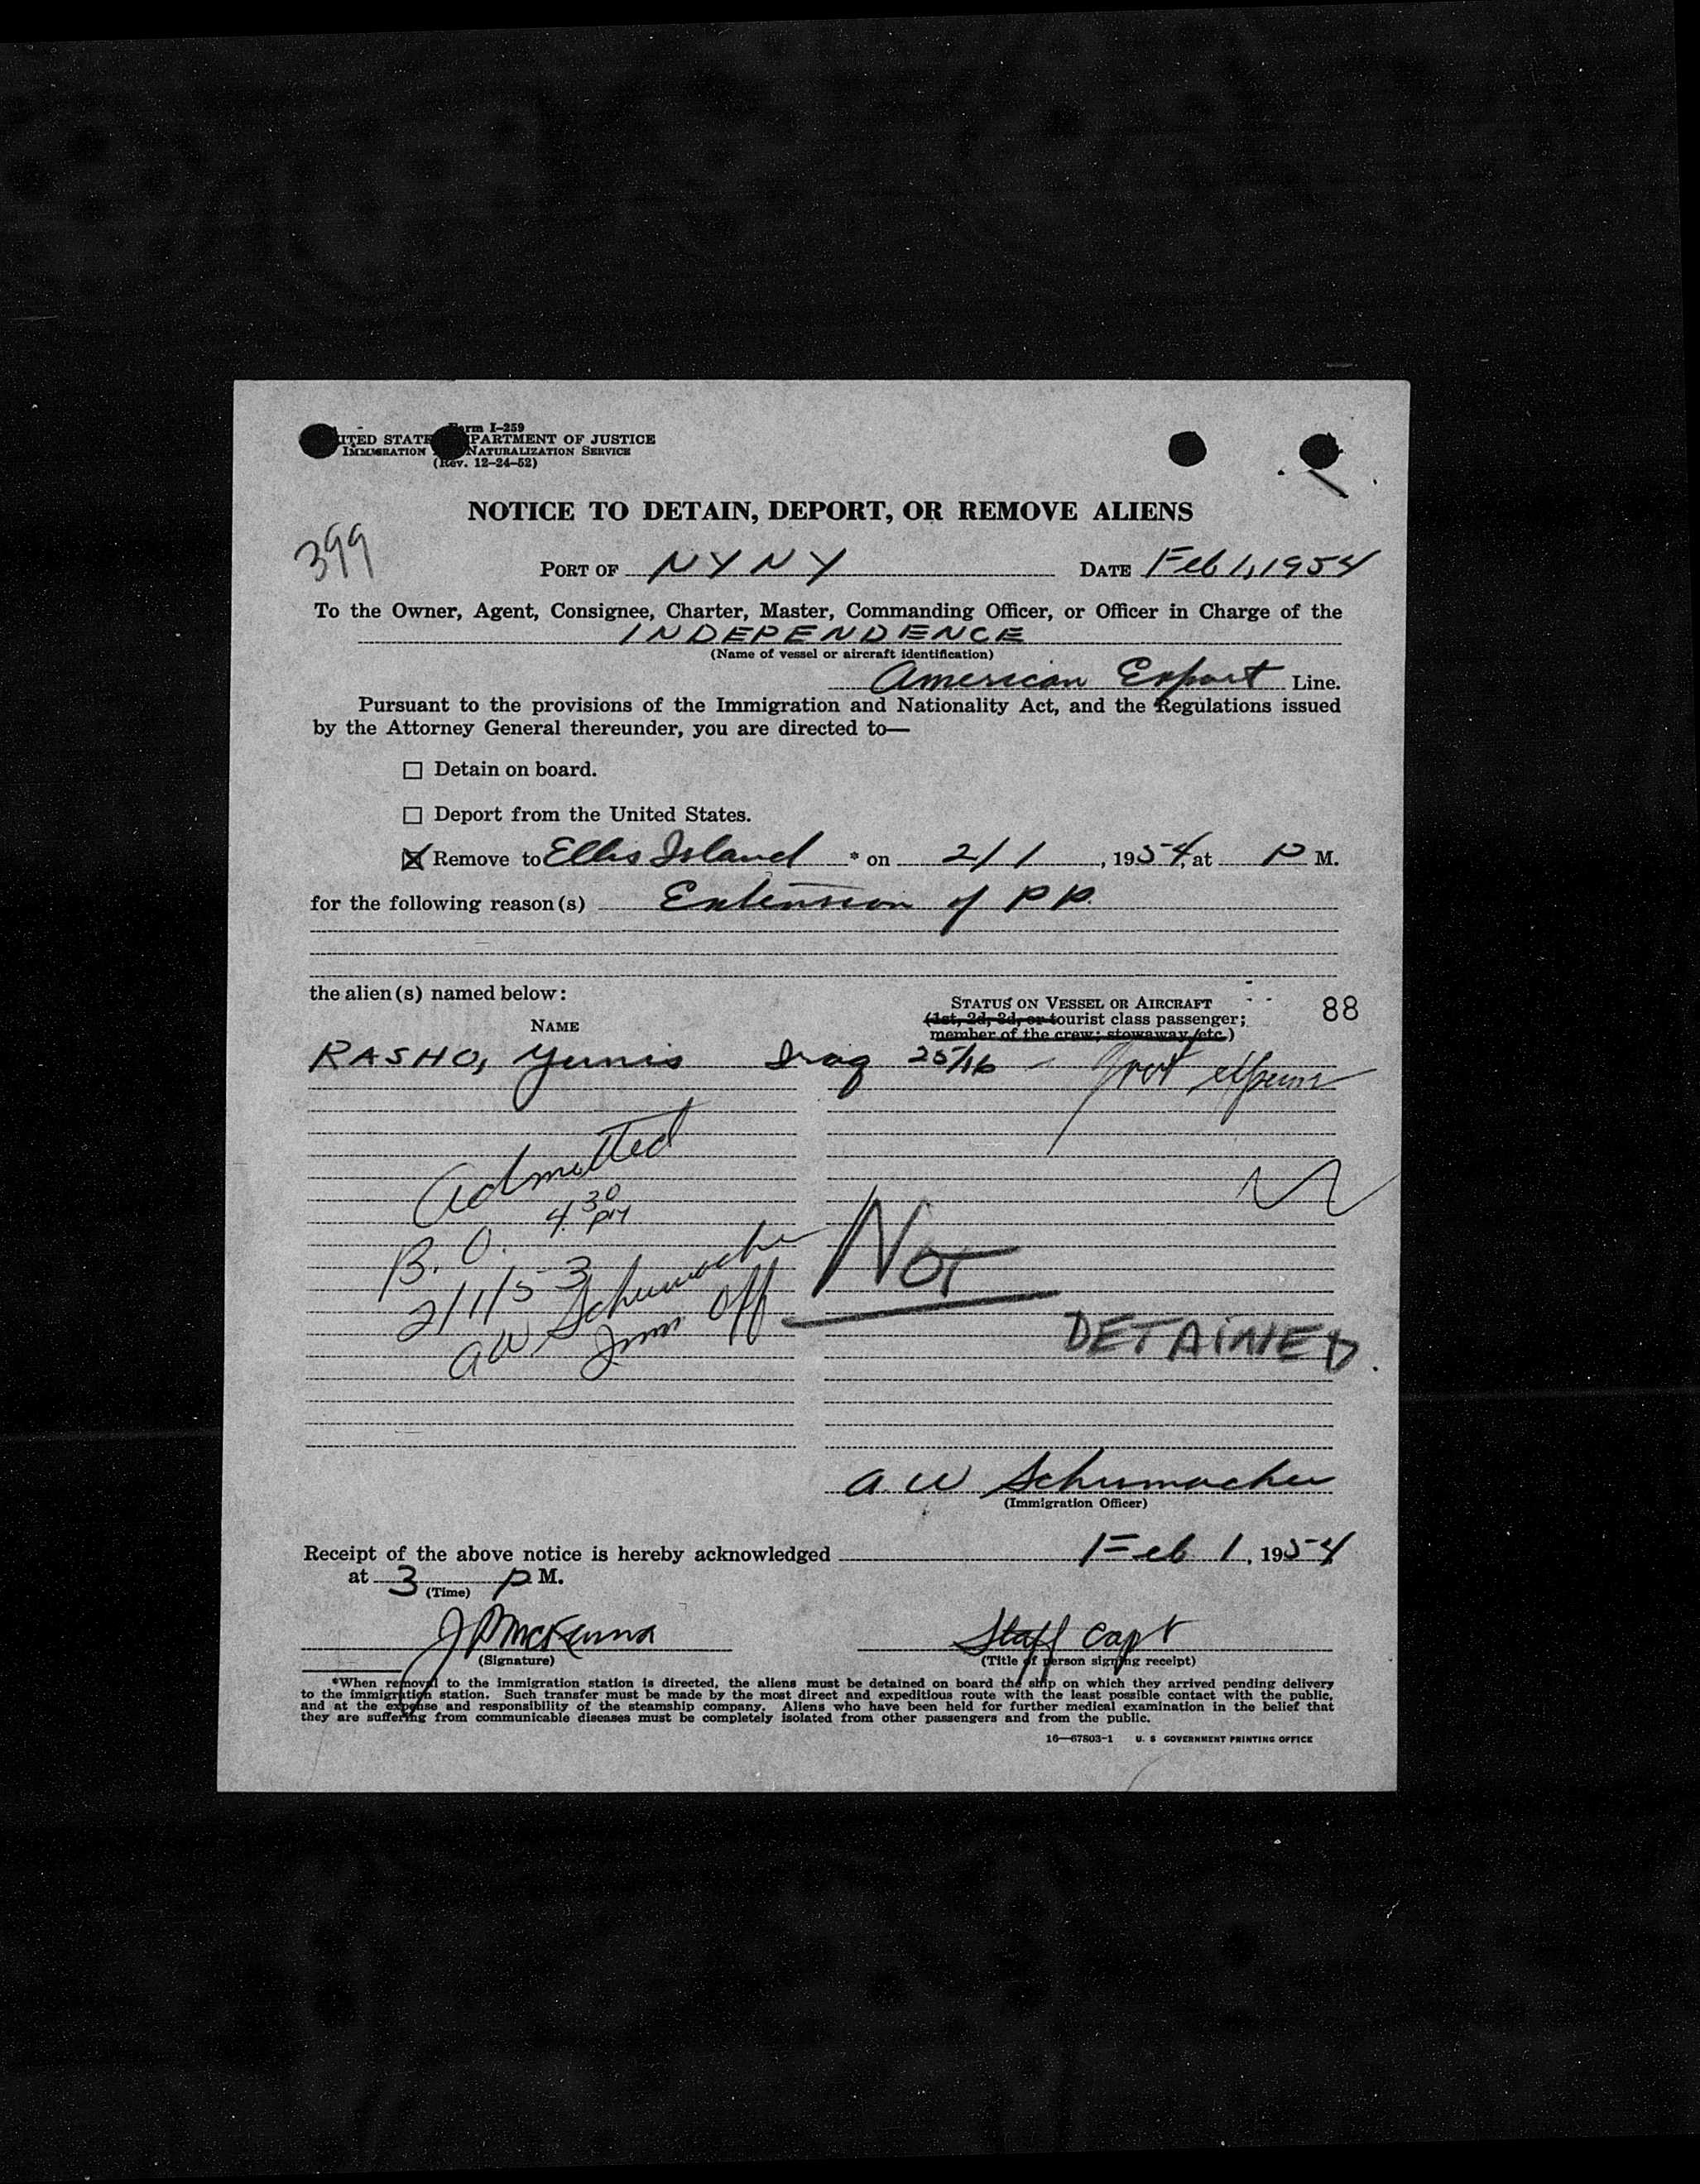 Form I-259
UNITED STATES DEPARTMENT OF JUSTICE
IMMIGRATION AND NATURALIZATION SERVICE
(Rev. 12-24-52)
NOTICE TO DETAIN, DEPORT, OR REMOVE ALIENS
399
PORT OF NYNY DATE Feb 1, 1954
To the Owner, Agent, Consignee, Charter, Master, Commanding Officer, or Officer in Charge of the
INDEPENDENCE
(Name of vessel or aircraft identification)
American Export Line.
Pursuant to the provisions of the Immigration and Nationality Act, and the Regulations issued
by the Attorney General thereunder, you are directed to—
☐ Detain on board.
☐ Deport from the United States.
☒ Remove to Ellis Island * on 2/1, 1954, at P M.
for the following reason(s) Extension of PP.
the alien(s) named below:
NAME
STATUS ON VESSEL OR AIRCRAFT
(1st, 2d, 3d, or tourist class passenger;
member of the crew; stowaway, etc.)
88
RASHO, Yunis Iraq 25/16 —
Admitted
4 30 PM
B. O.
2/1/53
AW Schumacher
Imm Off
NOT
DETAINED.
A W Schumacher
(Immigration Officer)
Receipt of the above notice is hereby acknowledged Feb 1, 1954
at 3 P M.
(Time)
J P McKenna Staff Capt
(Signature) (Title of person signing receipt)
*When removal to the immigration station is directed, the aliens must be detained on board the ship on which they arrived pending delivery
to the immigration station. Such transfer must be made by the most direct and expeditious route with the least possible contact with the public,
and at the expense and responsibility of the steamship company. Aliens who have been held for further medical examination in the belief that
they are suffering from communicable diseases must be completely isolated from other passengers and from the public.
16—67803-1 U. S GOVERNMENT PRINTING OFFICE